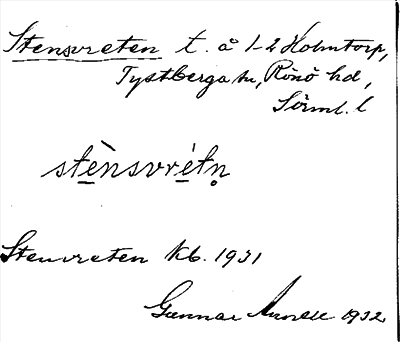 Stensvreten t. å 1-2 Holmtorp,
Tystberga sn, Rönö hd,
Sörml. l
stènsvrétn̥
Stensvreten kb. 1931
Gunnar 1932